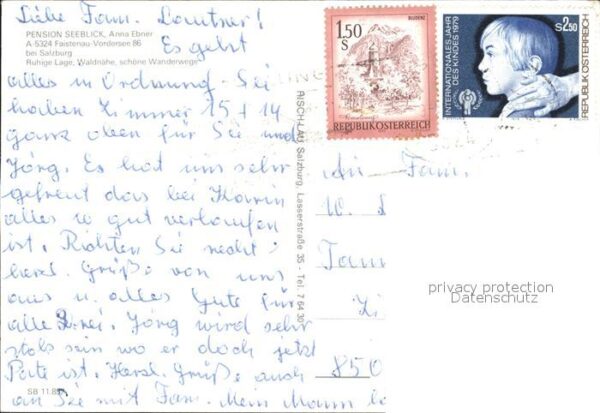 Liebe Fam. Lautner!
PENSION SEEBLICK, Anna Ebner
A-5324 Faistenau-Vordersee 86
bei Salzburg
Ruhige Lage, Waldnähe, schöne Wanderwege
Es geht
alles in Ordnung. Sie
haben Zimmer 15 + 14
ganz oben für Sie und
Jörg. Es hat uns sehr
gefreut das bei Karin
alles so gut verlaufen
ist. Richten Sie recht
herzl. Grüße von uns
aus u. alles Gute für
alle 3rei. Jörg wird sehr
stolz sein wo er doch jetzt
Pate ist. Herzl. Grüße auch
an Sie mit Fam. Mein Mann
SB 11.85
RISCHLAU, Salzburg, Lasserstraße 35 - Tel. 7 64 30
1.50
S
BLUDENZ
REPUBLIK ÖSTERREICH
INTERNATIONALES JAHR
DES KINDES 1979
S2.50
REPUBLIK ÖSTERREICH
An Fam.
W. L
Fam
850
privacy protection
Datenschutz